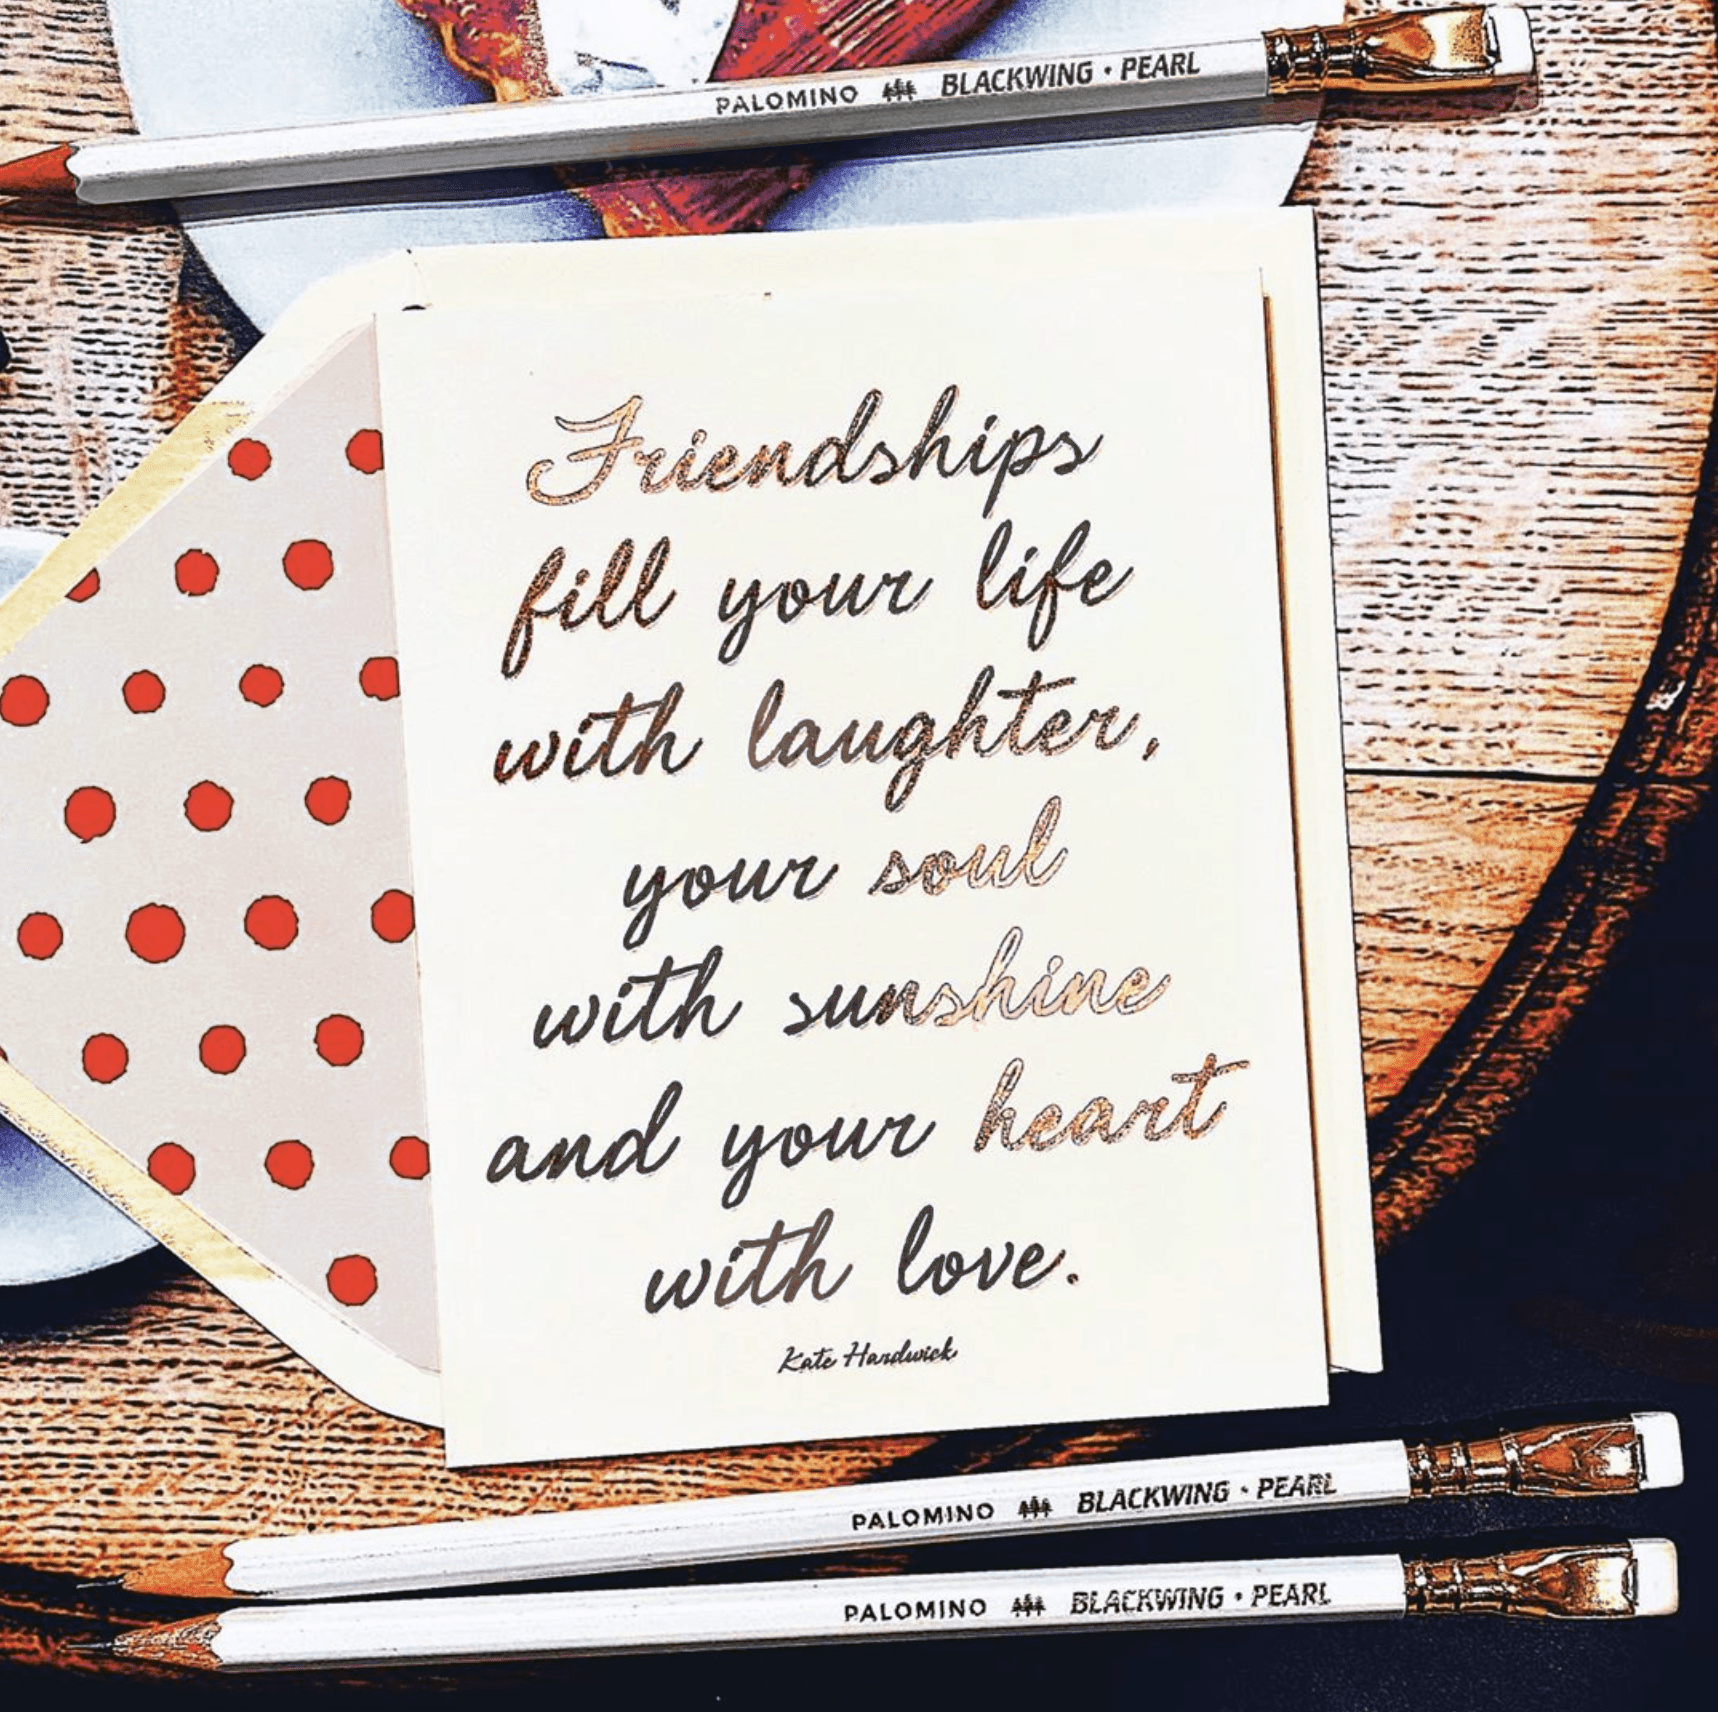 PALOMINO BLACKWING · PEARL
Friendships
fill your life
with laughter,
your soul
with sunshine
and your heart
with love.
Kate Hardwick
PALOMINO BLACKWING · PEARL
PALOMINO BLACKWING · PEARL